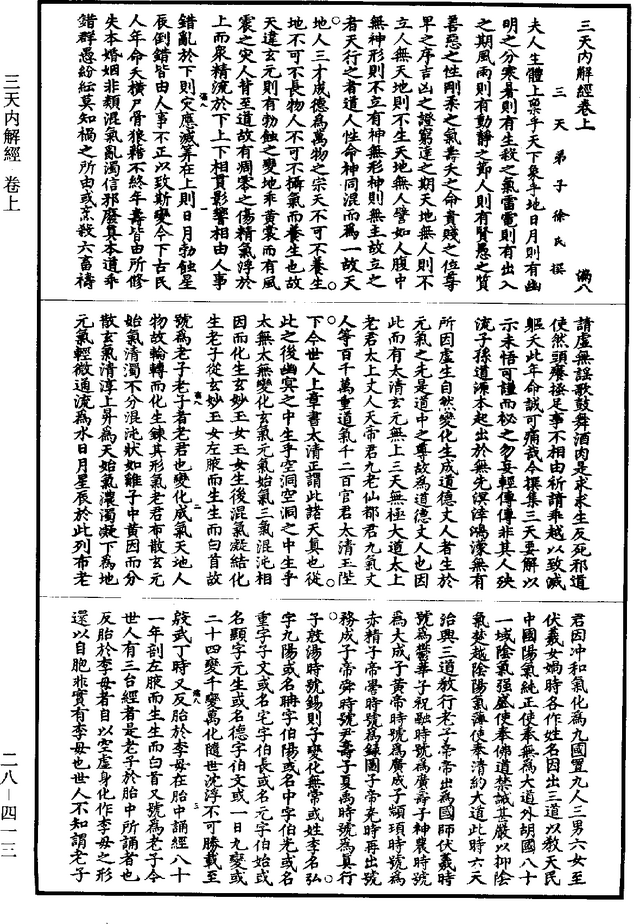 三天內解經卷上
三天弟子徐氏撰 滿八
夫人生體上稟乎天下象乎地日月則有幽
明之分寒暑則有生殺之氣雷電則有出入
之期風雨則有動靜之節人則有賢愚之質
善惡之性剛柔之氣壽夭之命貴賤之位尊
卑之序吉凶之證窮達之期天地無人則不
立人無天地則不生天地無人譬如人腹中
無神形則不立有神無形神則無主故立之
者天行之者道人性命神同混而為一故天
地人三才成德為萬物之宗天不可不養生
地不可不長物人不可不攝氣而養生也故
天違玄元則有勃蝕之變地乖黃裳而有風
震之災人背至道故有凋零之傷精氣浮於
上而眾精流於下上下相貫影響相由人事
錯亂於下則災應滅筭在上則日月勃蝕星
辰倒錯皆由人事不正以致斯變今下古民
人年命夭橫尸骨狼藉不終年壽皆由所修
失本婚姻非類混氣亂濁信邪廢真本道乖
錯群愚紛紜莫知禍之所由或烹殺六畜禱
請虛無謠歌鼓舞酒肉是求求生反死邪道
使然頭癢搔足事不相由祈請乖越以致滅
軀夭此年命誠可痛哉今撰集三天要解以
示未悟可謹而祕之勿妄輕傳傳非其人殃
流子孫道源本起出於無先溟涬鴻濛無有
所因虛生自然變化生成道德丈人者生於
元氣之先是道中之尊故為道德丈人也因
此而有太清玄元無上三天無極大道太上
老君太上丈人天帝君九老仙都君九氣丈
人等百千萬重道氣千二百官君太清玉陛
下今世人上章書太清正謂此諸天真也從
此之後幽冥之中生乎空洞空洞之中生乎
太無太無變化玄氣元氣始氣三氣混沌相
因而化生玄妙玉女玉女生後混氣凝結化
生老子從玄妙玉女左腋而生生而白首故
號為老子老子者老君也變化成氣天地人
物故輪轉而化生鍊其形氣老君布散玄元
始氣清濁不分混沌狀如雞子中黃因而分
散玄氣清淳上昇為天始氣濃濁凝下為地
元氣輕微通流為水日月星辰於此列布老
君因沖和氣化為九國置九人三男六女至
伏羲女媧時各作姓名因出三道以教天民
中國陽氣純正使奉無為大道外胡國八十
一域陰氣強盛使奉佛道禁誡甚嚴以抑陰
氣楚越陰陽氣薄使奉清約大道此時六天
治興三道教行老子帝帝出為國師伏羲時
號為鬱華子祝融時號為廣壽子神農時號
為大成子黃帝時號為廣成子顓頊時號為
赤精子帝嚳時號為錄圖子帝堯時再出號
務成子帝舜時號尹壽子夏禹時號為真行
子殷湯時號錫則子變化無常或姓李名弘
字九陽或名聃字伯陽或名中字伯光或名
重字子文或名宅字伯長或名元字伯始或
名顯字元生或名德字伯文或一日九變或
二十四變千變萬化隨世沈浮不可勝載至
殷武丁時又反胎於李母在胎中誦經八十
一年剖左腋而生生而白首又號為老子今
世人有三台經者是老子於胎中所誦者也
反胎於李母者自以空虛身化作李母之形
還以自胞非實有李母也世人不知謂老子
三天內解經 卷上
二八－四一三